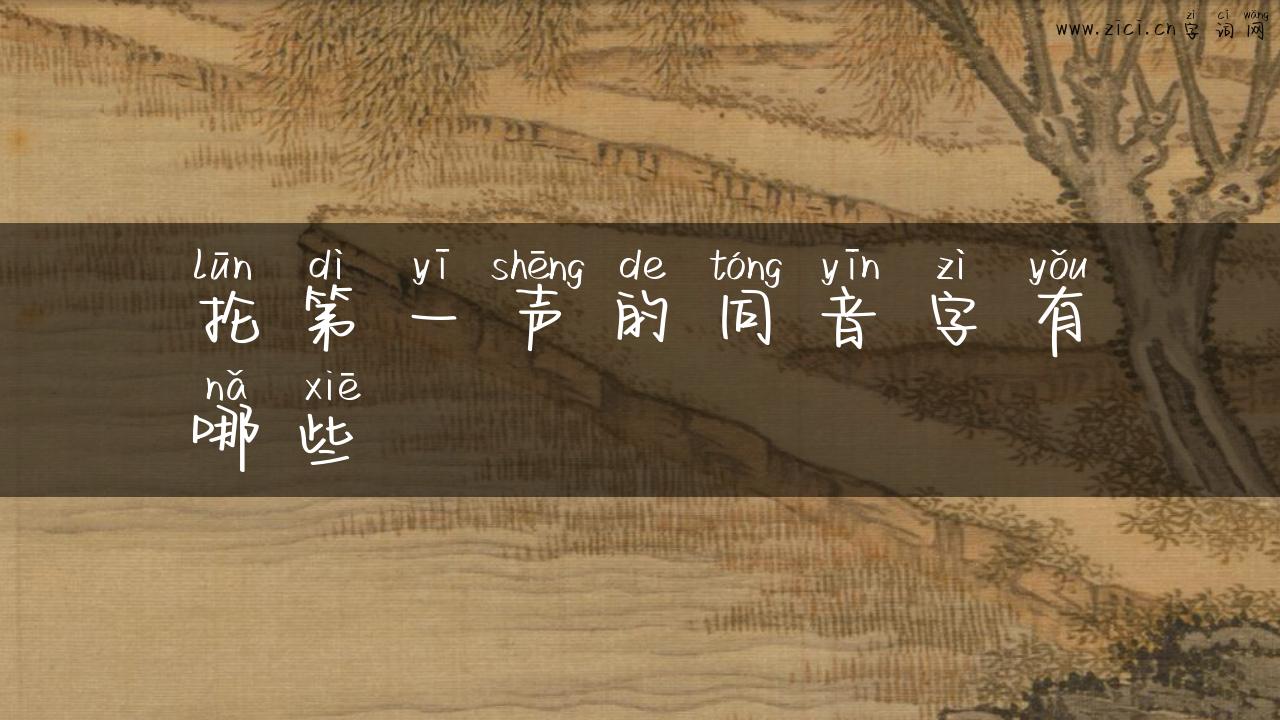 zì cí wǎng
www.zici.cn字词网
lūn dì yī shēng de tóng yīn zì yǒu
抡第一声的同音字有
nǎ xiē
哪些